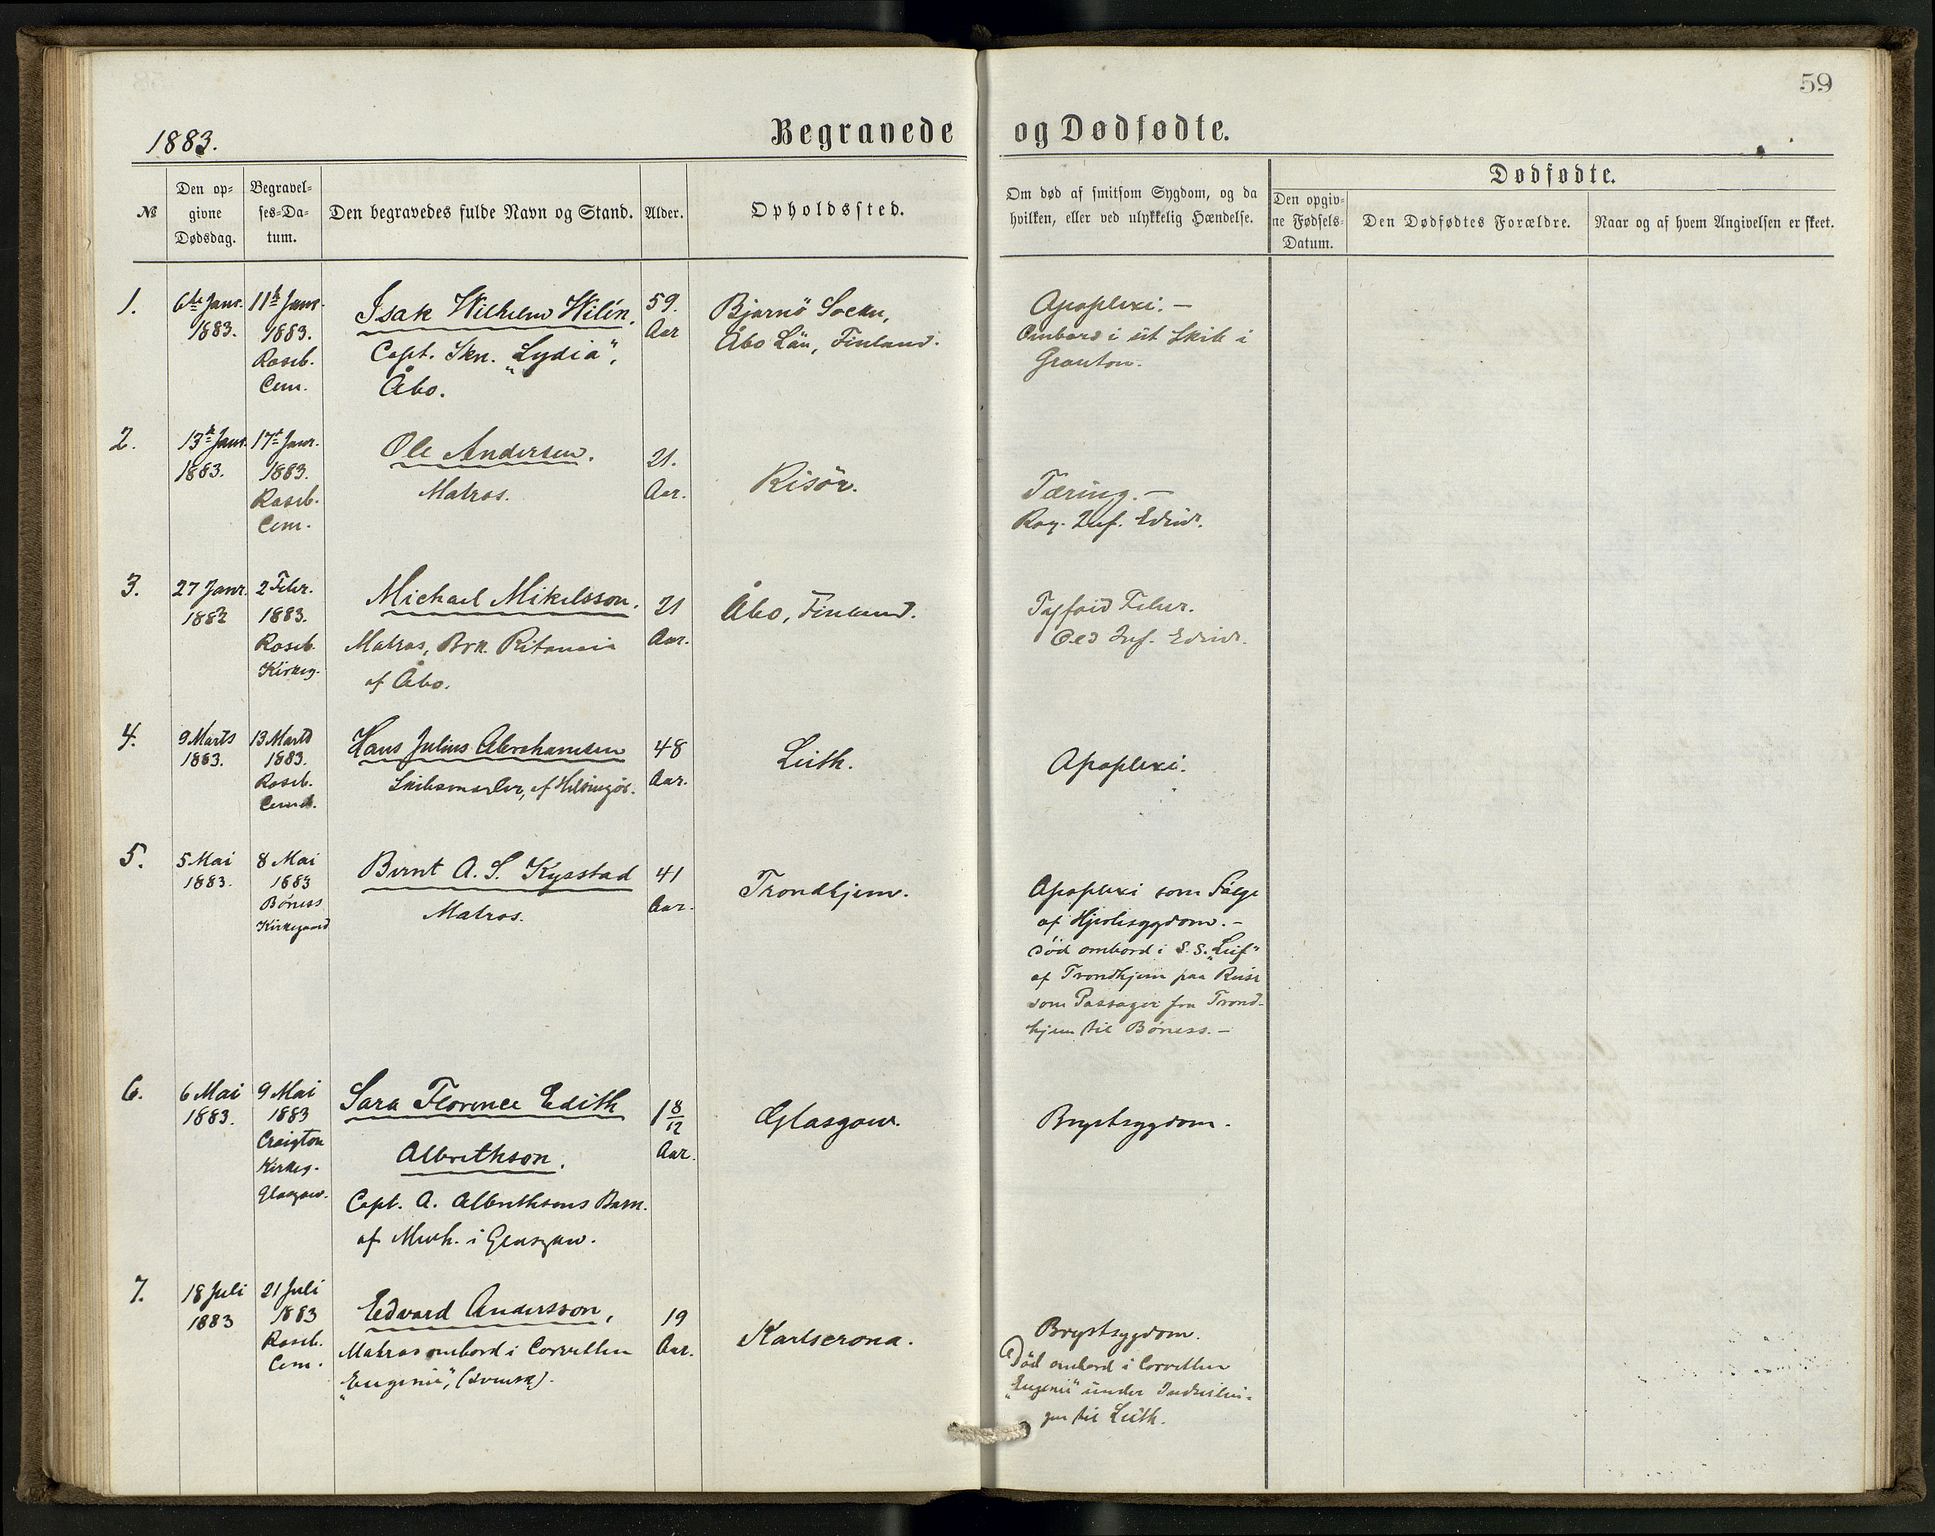 59
1883.
Begravede og Dødfødte.
№
Den op-
givne
Dødsdag.
Begravel-
ses-Da-
tum.
Den begravedes fulde Navn og Stand.
Alder.
Opholdssted.
Om død af smitsom Sygdom, og da
hvilken, eller ved ulykkelig Hændelse.
Dødfødte.
Den opgiv-
ne Fødsels-
Datum.
Den Dødfødtes Forældre.
Naar og af hvem Angivelsen er skeet.
1.
6te Janr.
1883.
11te Janr.
1883.
Roseb.
Cem.
Isak Wilhelm Wilén,
Capt. Skn. "Lydia",
Åbo.
59.
Aar
Bjernö Socken,
Åbo Län, Finland.
Apoplexi. —
Ombord i sit Skib i
Granton.
2.
13de Janr.
1883.
17de Janr.
1883.
Roseb.
Cem.
Ole Andersen.
Matros.
21.
Aar.
Risör.
Tæring. —
Roy. Inf. Edinb.
3.
27 Janr.
1882
2 Febr.
1883.
Roseb.
Kirkeg.
Michael Mikelsson.
Matros, Brk.
af Åbo.
21
Aar.
Åbo, Finland.
Tyfoid Feber.
Old Inf. Edinb.
4.
9 Marts
1883.
13 Marts
1883.
Roseb.
Cem.
Hans Julius Abrahamsen
Skibsmægler, af Helsingör.
48
Aar.
Leith.
Apoplexi.
5.
5 Mai
1883.
8 Mai
1883
Böness
Kirkegaard
Bernt A. S. Kysstad
Matros.
41
Aar.
Trondhjem.
Apoplexi som Følge
af Hjertesygdom. —
død ombord i S.S. "Leif"
af Trondhjem paa Reise
som Passager fra Trond-
hjem til Böness. —
6.
6 Mai
1883.
9 Mai
1883
Craigton
Kirkeg.
Glasgow.
Sara Florence Edith
Albrethson.
Capt. A. Albrethsons Barn.
af Menh. i Glasgow.
1 8/12
Aar.
Glasgow.
Brystsygdom.
7.
18 Juli
1883
21 Juli
1883
Roseb.
Cem.
Edvard Andersson,
Matros ombord i Corvetten
"Eugenie", (svensk).
19
Aar.
Karlscrona.
Brystsygdom.
Död ombord i Corvetten
"Eugenie" under Indseilin-
gen til Leith.